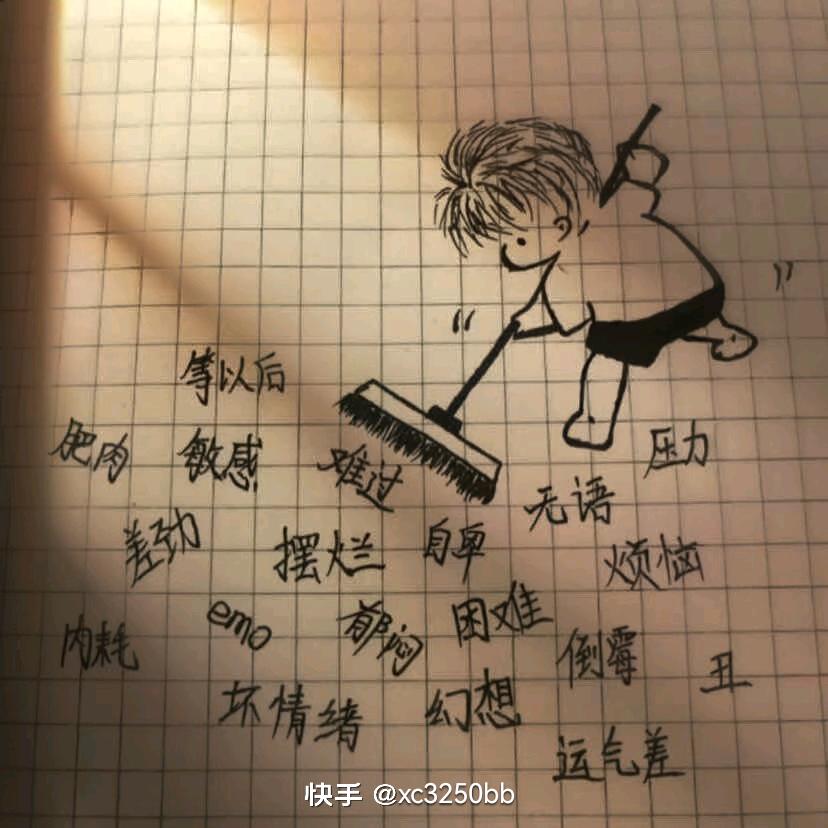 等以后
肥肉 敏感 难过 压力
无语
差劲 摆烂 自卑 烦恼
emo 郁闷 困难
内耗 倒霉 丑
坏情绪 幻想
运气差
快手 @xc3250bb